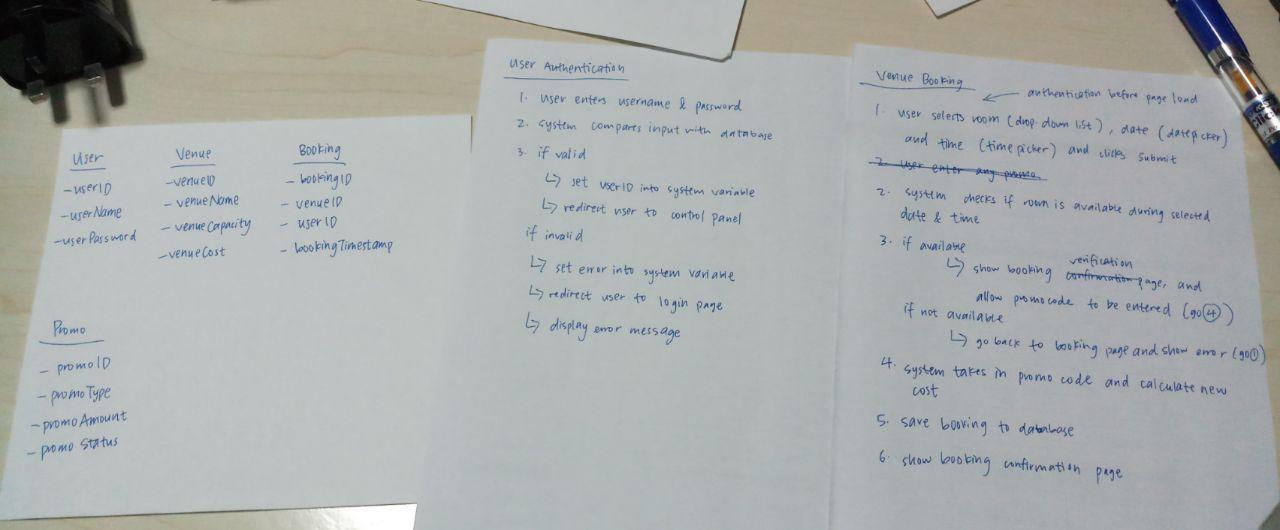 User
- userID
- userName
- userPassword
Venue
- venueID
- venueName
- venueCapacity
- venueCost
Booking
- bookingID
- venueID
- userID
- bookingTimestamp
Promo
- promoID
- promoType
- promoAmount
- promoStatus
User Authentication
1. user enters username & password
2. system compares input with database
3. if valid
↳ set userID into system variable
↳ redirect user to control panel
if invalid
↳ set error into system variable
↳ redirect user to login page
↳ display error message
Venue Booking
← authentication before page load
1. user selects room (drop down list), date (datepicker)
and time (timepicker) and clicks submit
2. user enter any promo
2. system checks if room is available during selected
date & time
3. if available
verification
↳ show booking confirmation page, and
allow promocode to be entered (go ④)
if not available
↳ go back to booking page and show error (go ①)
4. system takes in promo code and calculate new
cost
5. save booking to database
6. show booking confirmation page